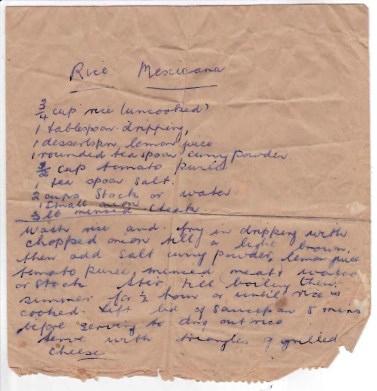 Rice Mexicana
3/4 cup rice (uncooked)
1 tablespoon dripping,
1 dessertspn lemon juice
1 rounded teaspoon curry powder
cup tomato puree
1 tea spoon salt.
2 cups stock or water
1 small onion
lb minced steak
Wash rice and fry in dripping with
chopped onion till a light brown.
then add salt curry powder, lemon juice
tomato puree, minced meat & water
or stock Stir till boiling then
simmer for 1/2 hour or until rice is
cooked. Lift lid of saucepan 5 mins
before serving to dry out rice
Serve with triangles of grilled
cheese